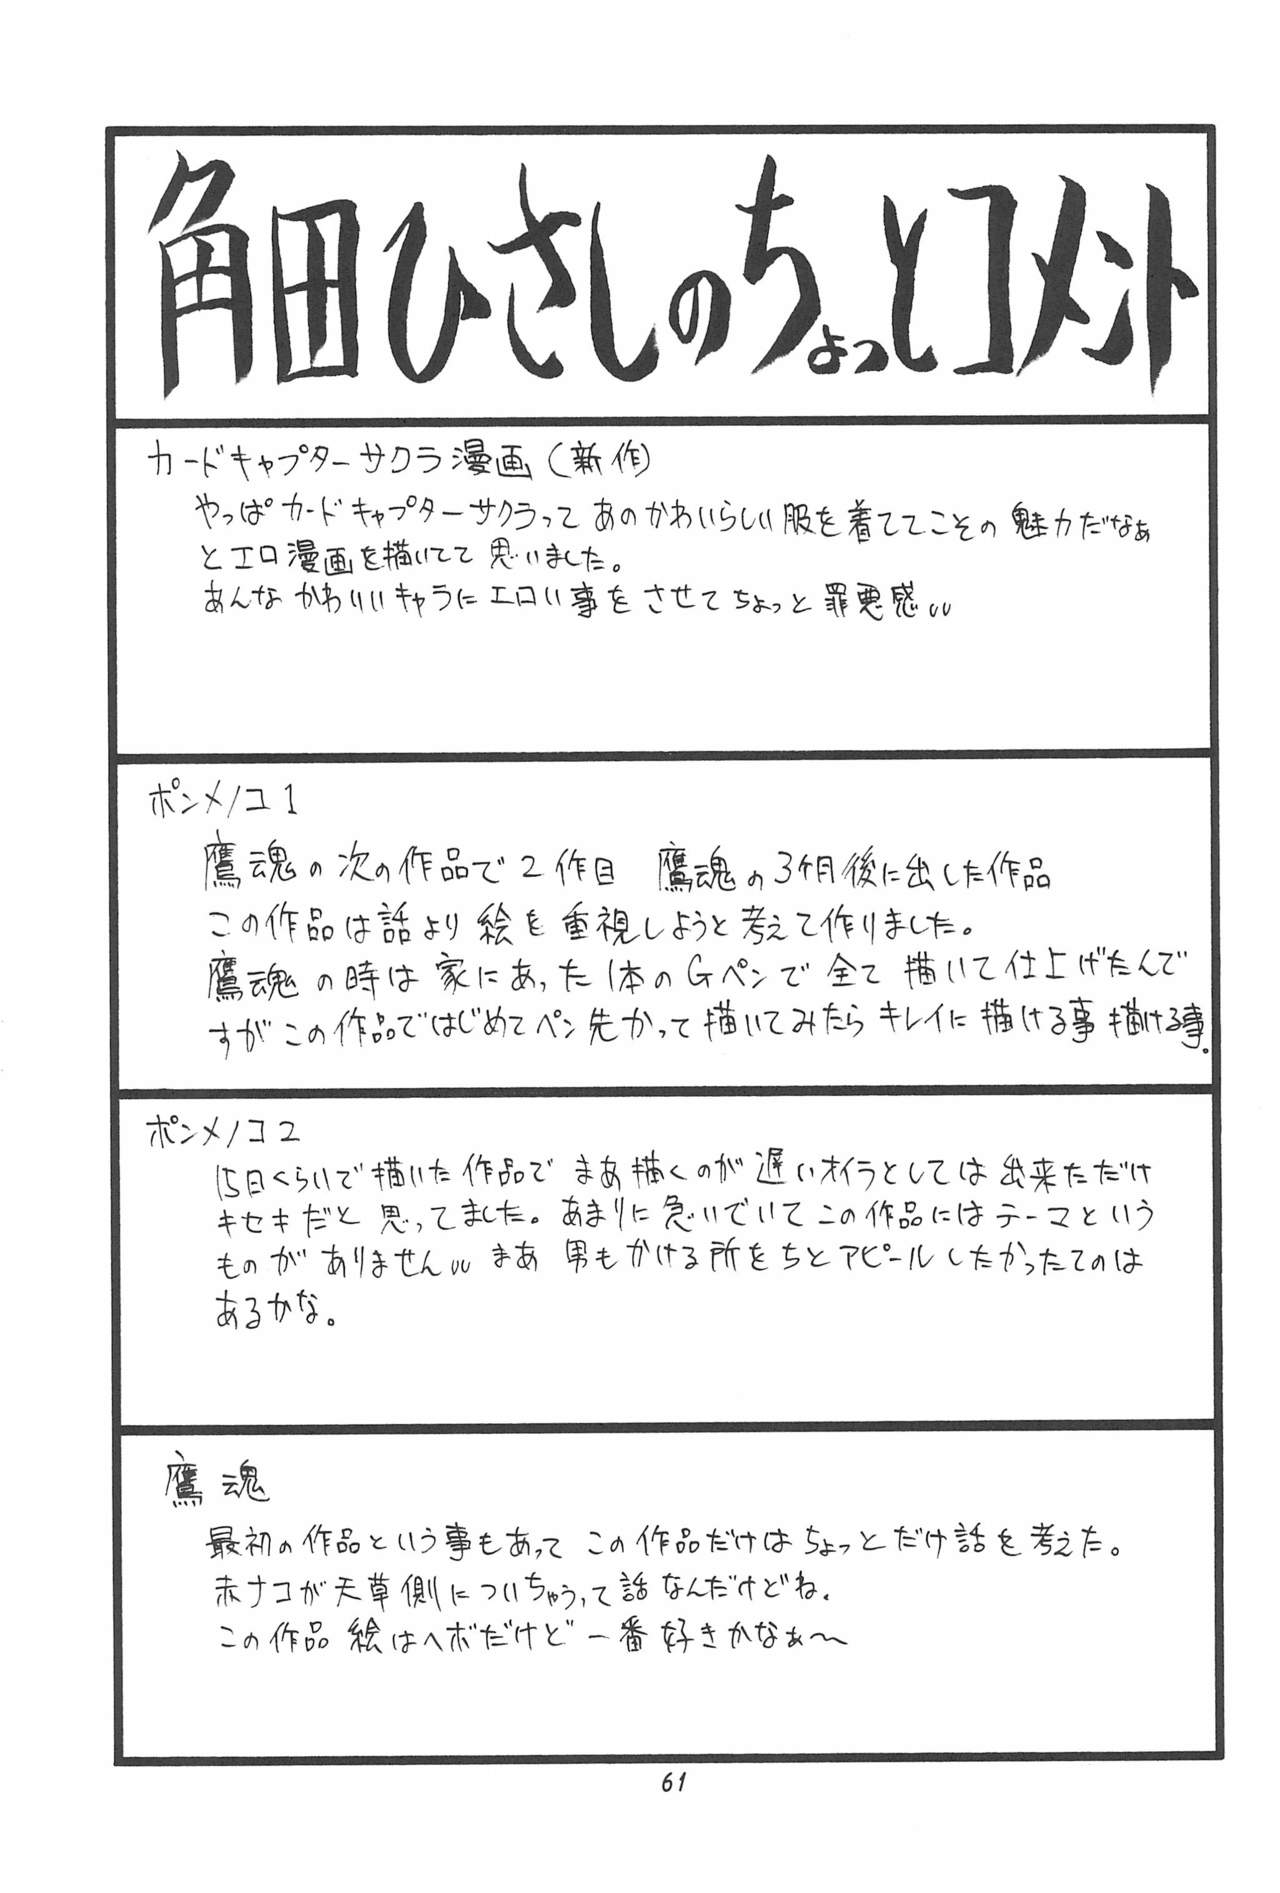 角田ひさしのちょっとコメント
カードキャプターサクラ漫画(新作)
やっぱカードキャプターサクラってあのかわいらしい服を着ててこその魅力だなぁ
とエロ漫画を描いてて思いました。
あんなかわいいキャラにエロい事をさせてちょっと罪悪感〃
ポンメノコ1
鷹魂の次の作品で2作目 鷹魂の3ヶ月後に出した作品
この作品は話より絵を重視しようと考えて作りました。
鷹魂の時は家にあった1本のGペンで全て描いて仕上げたんで
すがこの作品ではじめてペン先かって描いてみたらキレイに描ける事描ける事。
ポンメノコ2
15日くらいで描いた作品でまあ描くのが遅いオイラとしては出来ただけ
キセキだと思ってました。あまりに急いでいてこの作品にはテーマという
ものがありません〃まあ男もかける所をちとアピールしたかったてのは
あるかな。
鷹魂
最初の作品という事もあってこの作品だけはちょっとだけ話を考えた。
赤ナコが天草側についちゃうって話なんだけどね.
この作品 絵はヘボだけど一番好きかなぁ〜
61